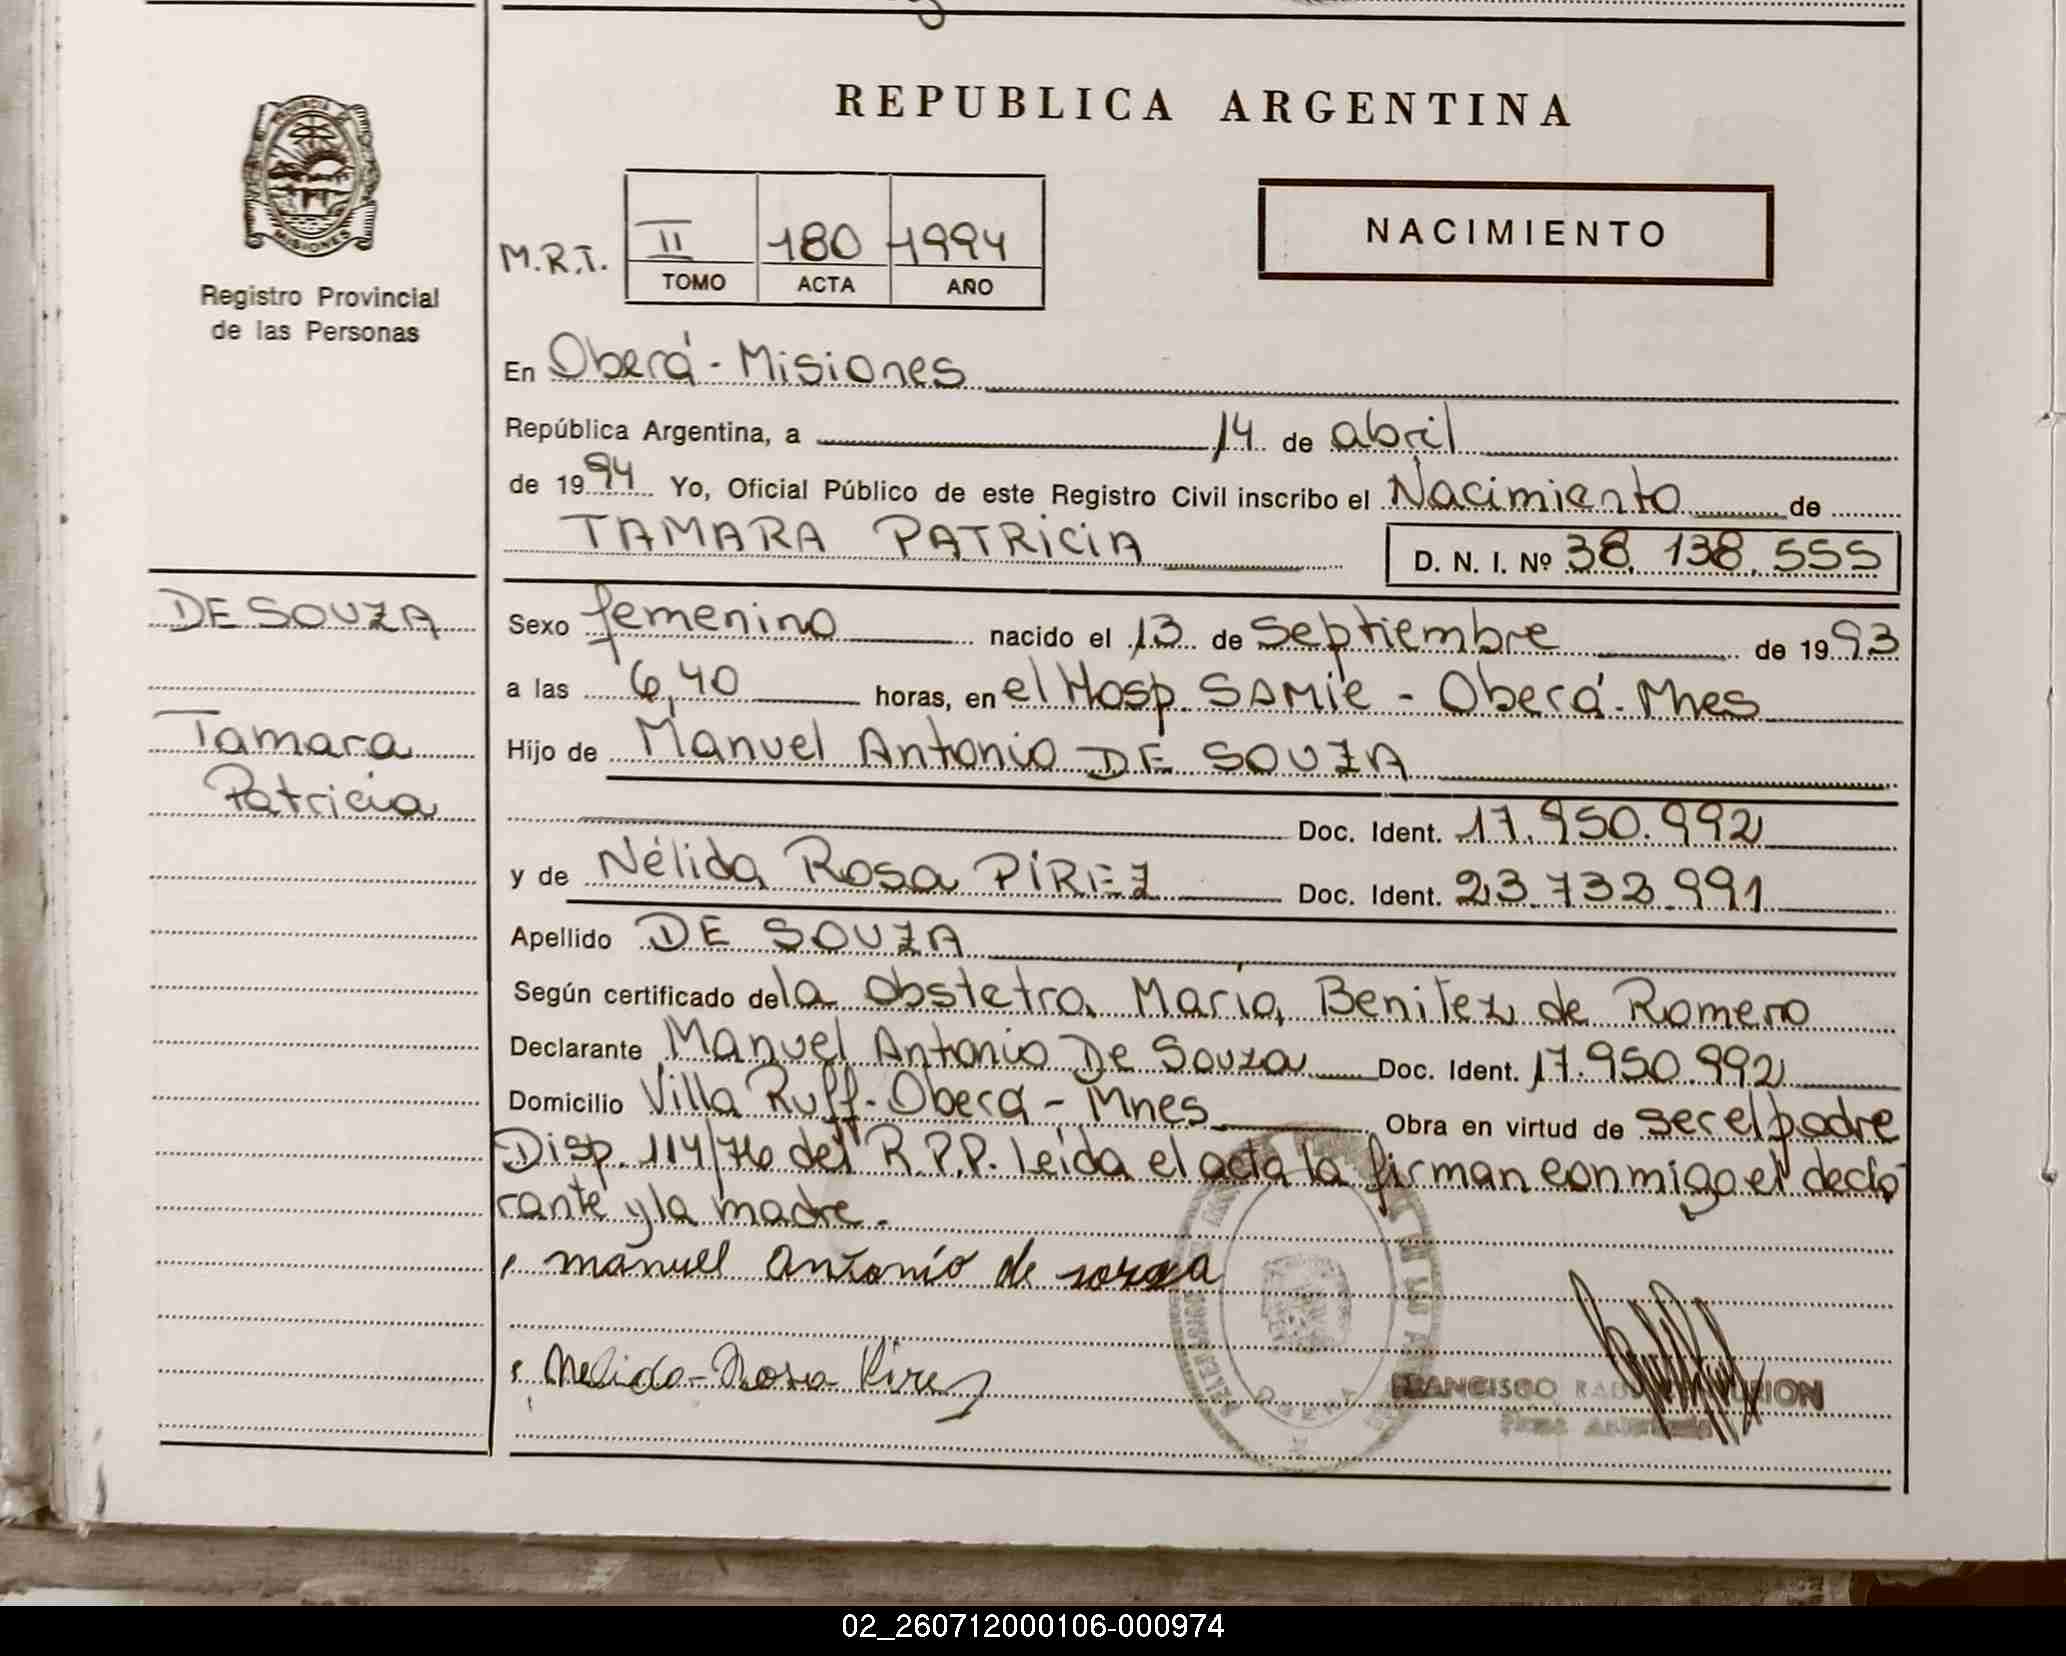 REPUBLICA ARGENTINA
PROVINCIA DE
MISIONES
Registro Provincial
de las Personas
NACIMIENTO
M.R.T. II 180 1994
TOMO ACTA AÑO
En Oberá - Misiones
República Argentina, a 14 de abril
de 1994 Yo, Oficial Público de este Registro Civil inscribo el Nacimiento de
TAMARA PATRICIA D. N. I. Nº 38.138.555
DE SOUZA
Tamara
Patricia
Sexo femenino nacido el 13 de Septiembre de 1993
a las 6,40 horas, en el Hosp. SAMIC - Oberá - Mnes
Hijo de Manuel Antonio DE SOUZA
Doc. Ident. 17.950.992
y de Nélida Rosa PÍREZ Doc. Ident. 23.733.991
Apellido DE SOUZA
Según certificado de la obstetra María Benitez de Romero
Declarante Manuel Antonio De Souza Doc. Ident. 17.950.992
Domicilio Villa Ruff - Oberá - Mnes Obra en virtud de ser el padre
Disp. 114/76 del R.P.P. Leída el acta la firman conmigo el decla
rante y la madre.
manuel antonio de souza
Nelida Rosa Pirez
FRANCISCO
02_260712000106-000974